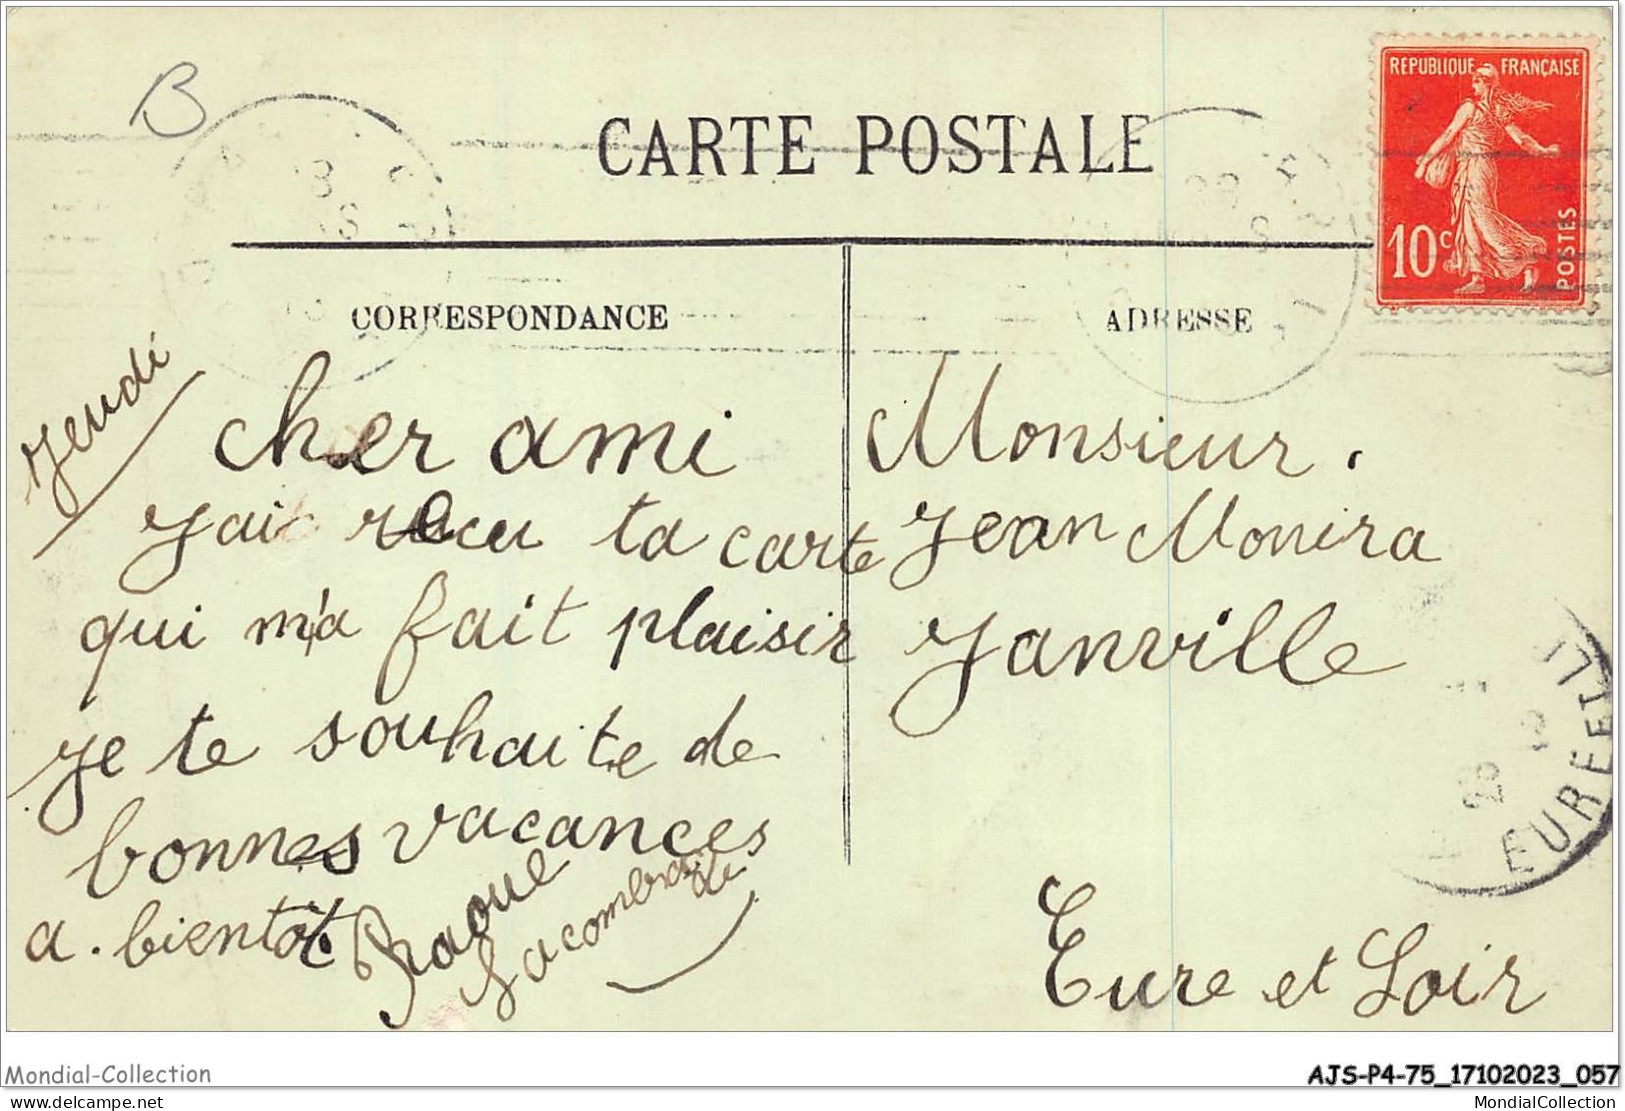 B
CARTE POSTALE
REPUBLIQUE FRANÇAISE
10c
POSTES
CORRESPONDANCE
ADRESSE
Jeudi
Cher ami
J'ai recu ta carte
qui m'a fait plaisir
je te souhaite de
bonnes vacances
a. bientôt
Raoul
Lacombrade
Monsieur.
Jean Monira
Janville
Eure et Loir
EURE ET L
Mondial-Collection
AJS-P4-75_17102023_057
delcampe.net
MondialCollection